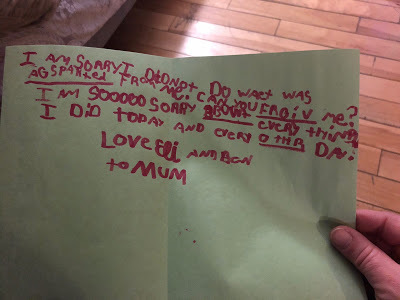 I AM SORRY I DIDNOT DO WAET WAS
AGSPAKTED FROM ME. CAN YOU FROGIV ME?
I AM SOOOOO SORRY ABOUT EVERY THING
I DiD TODAY AND EVERY OTHR DAY.
LOVE Eli AND BEN
to MUM